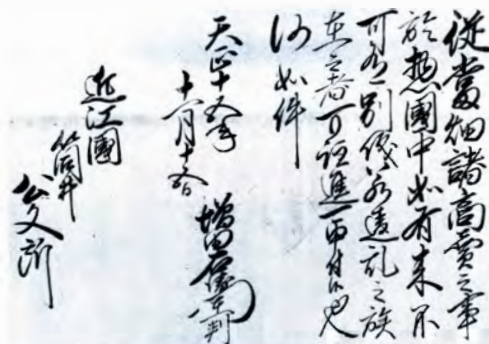 従当畑諸商売之事
於惣国中如有来不
可有別儀若違乱之族
在之者可註進一面付候也
仍如件
天正十五年
十一月十五日 増田右衛門尉判
近江国
筒井
公文所